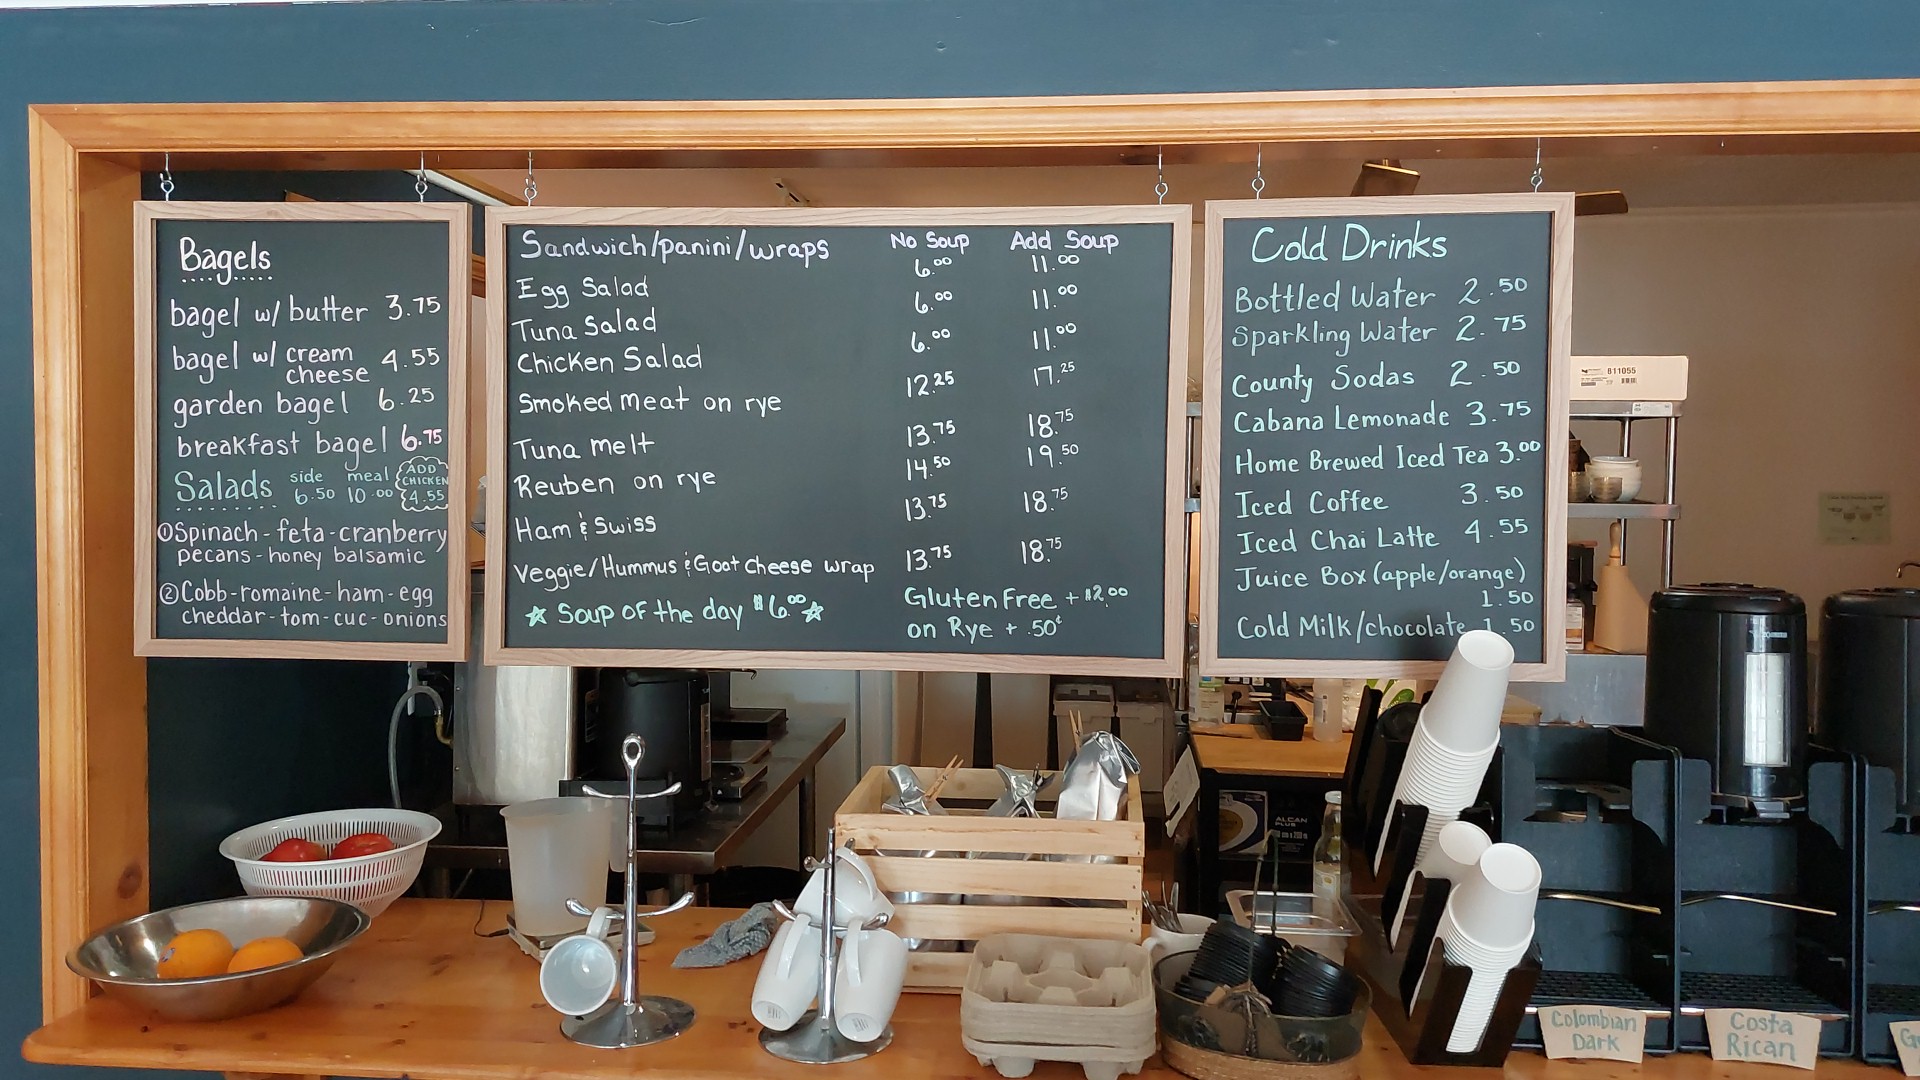 Bagels
bagel w/ butter 3.75
bagel w/ cream cheese 4.55
garden bagel 6.25
breakfast bagel 6.75
Salads side 6.50 meal 10.00 ADD CHICKEN 4.55
① Spinach - feta - cranberry
pecans - honey balsamic
② Cobb - romaine - ham - egg
cheddar - tom - cuc - onions
Sandwich/panini/wraps No Soup Add Soup
Egg Salad 6.00 11.00
Tuna Salad 6.00 11.00
Chicken Salad 6.00 11.00
Smoked meat on rye 12.25 17.25
Tuna melt 13.75 18.75
Reuben on rye 14.50 19.50
Ham & Swiss 13.75 18.75
Veggie/Hummus & Goat Cheese wrap 13.75 18.75
☆ Soup of the day $6.00 ☆
Gluten Free + $2.00
on Rye + .50¢
Cold Drinks
Bottled Water 2.50
Sparkling Water 2.75
County Sodas 2.50
Cabana Lemonade 3.75
Home Brewed Iced Tea 3.00
Iced Coffee 3.50
Iced Chai Latte 4.55
Juice Box (apple/orange)
1.50
Cold Milk/chocolate 1.50
811055
ALCAN
PLUS
Colombian
Dark
Costa
Rican